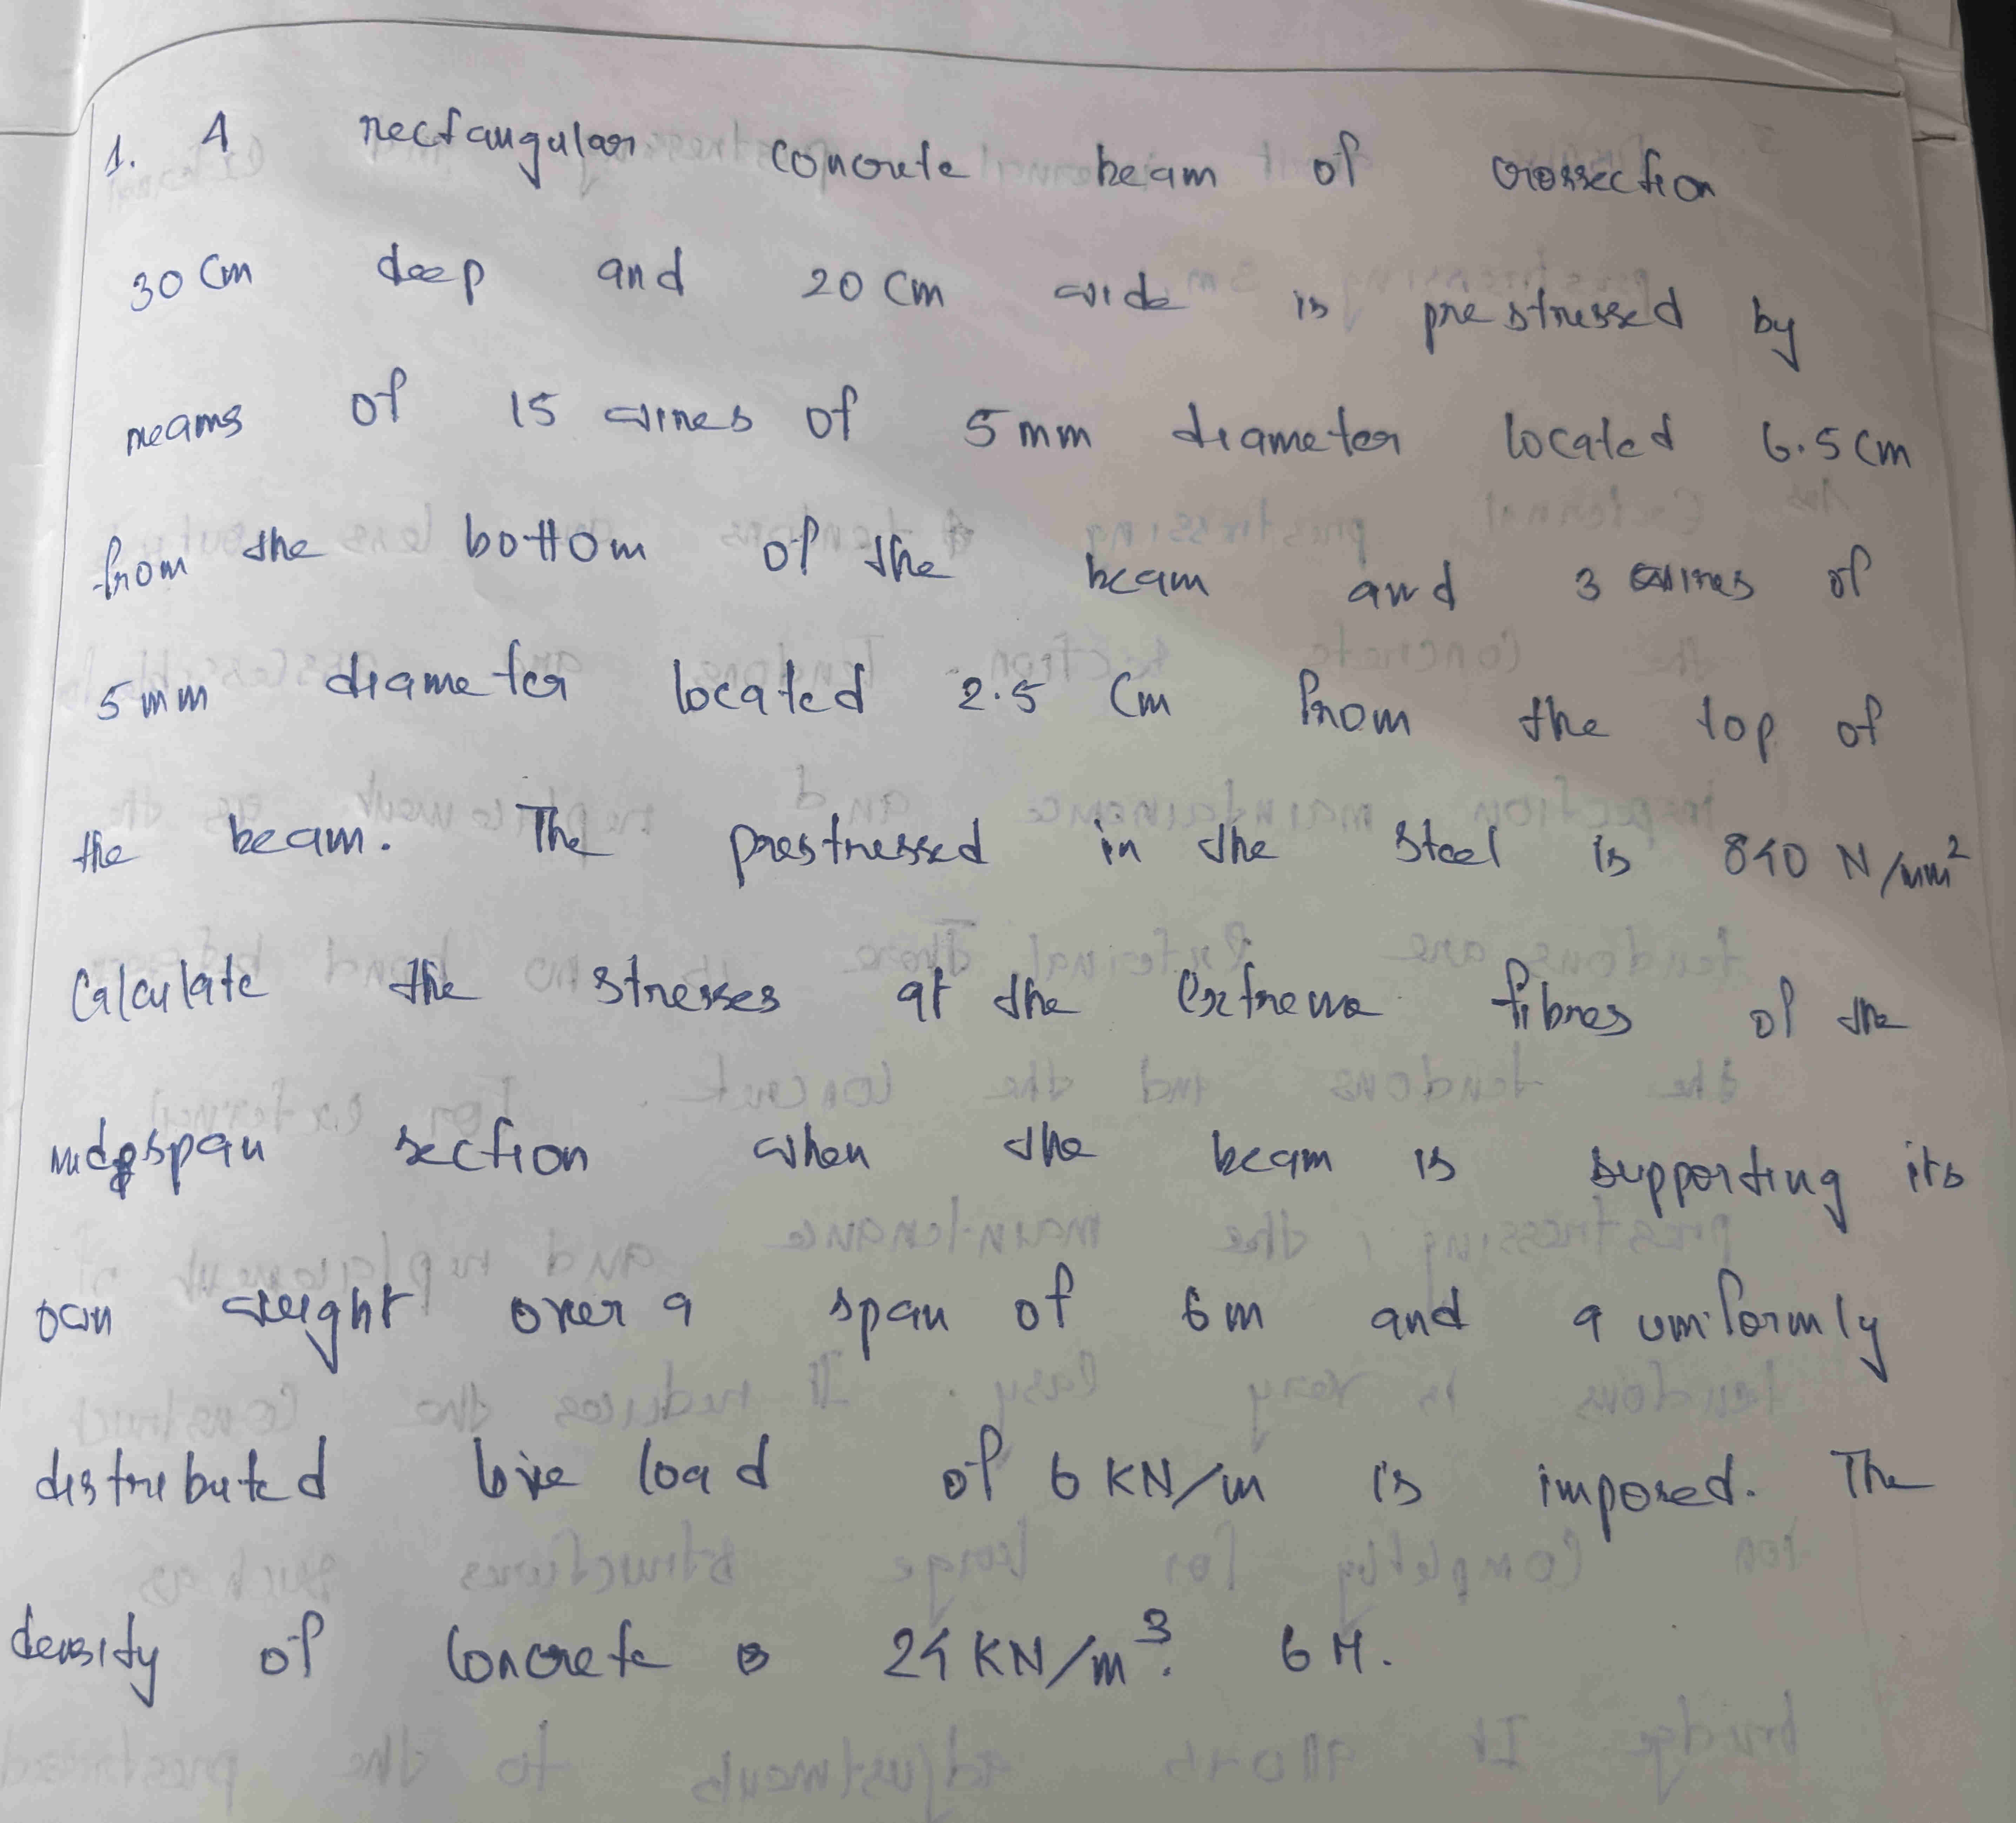 1. A rectangular concrete beam of crossection
30 Cm deep and 20 Cm wide is prestressed by
means of 15 wires of 5 mm diameter located 6.5 Cm
from the bottom of the beam and 3 wires of
5 mm diameter located 2.5 Cm from the top of
the beam. The prestressed in the steel is 840 N/mm²
Calculate the stresses at the extreme fibres of the
midspan section when the beam is supporting its
own weight over a span of 6m and a uniformly
distributed live load of 6 KN/m is imposed. The
density of Concrete is 24 KN/m³. 6 M.